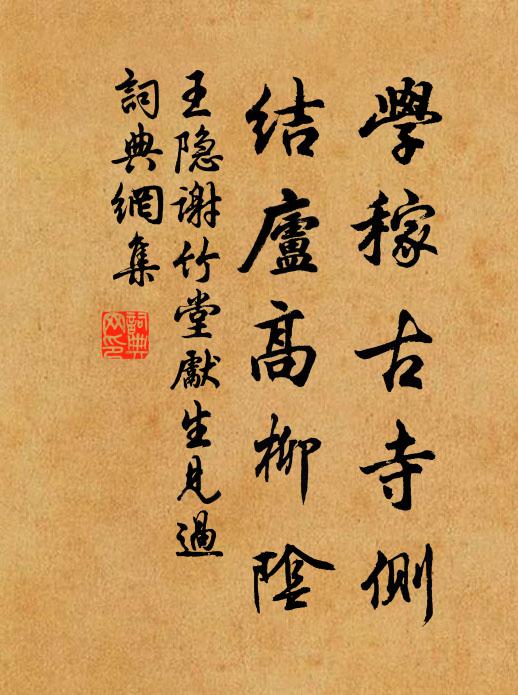 學稼古寺側
結廬高柳陰
王隐謝竹堂獻生見過
詞典網集
詞典網印